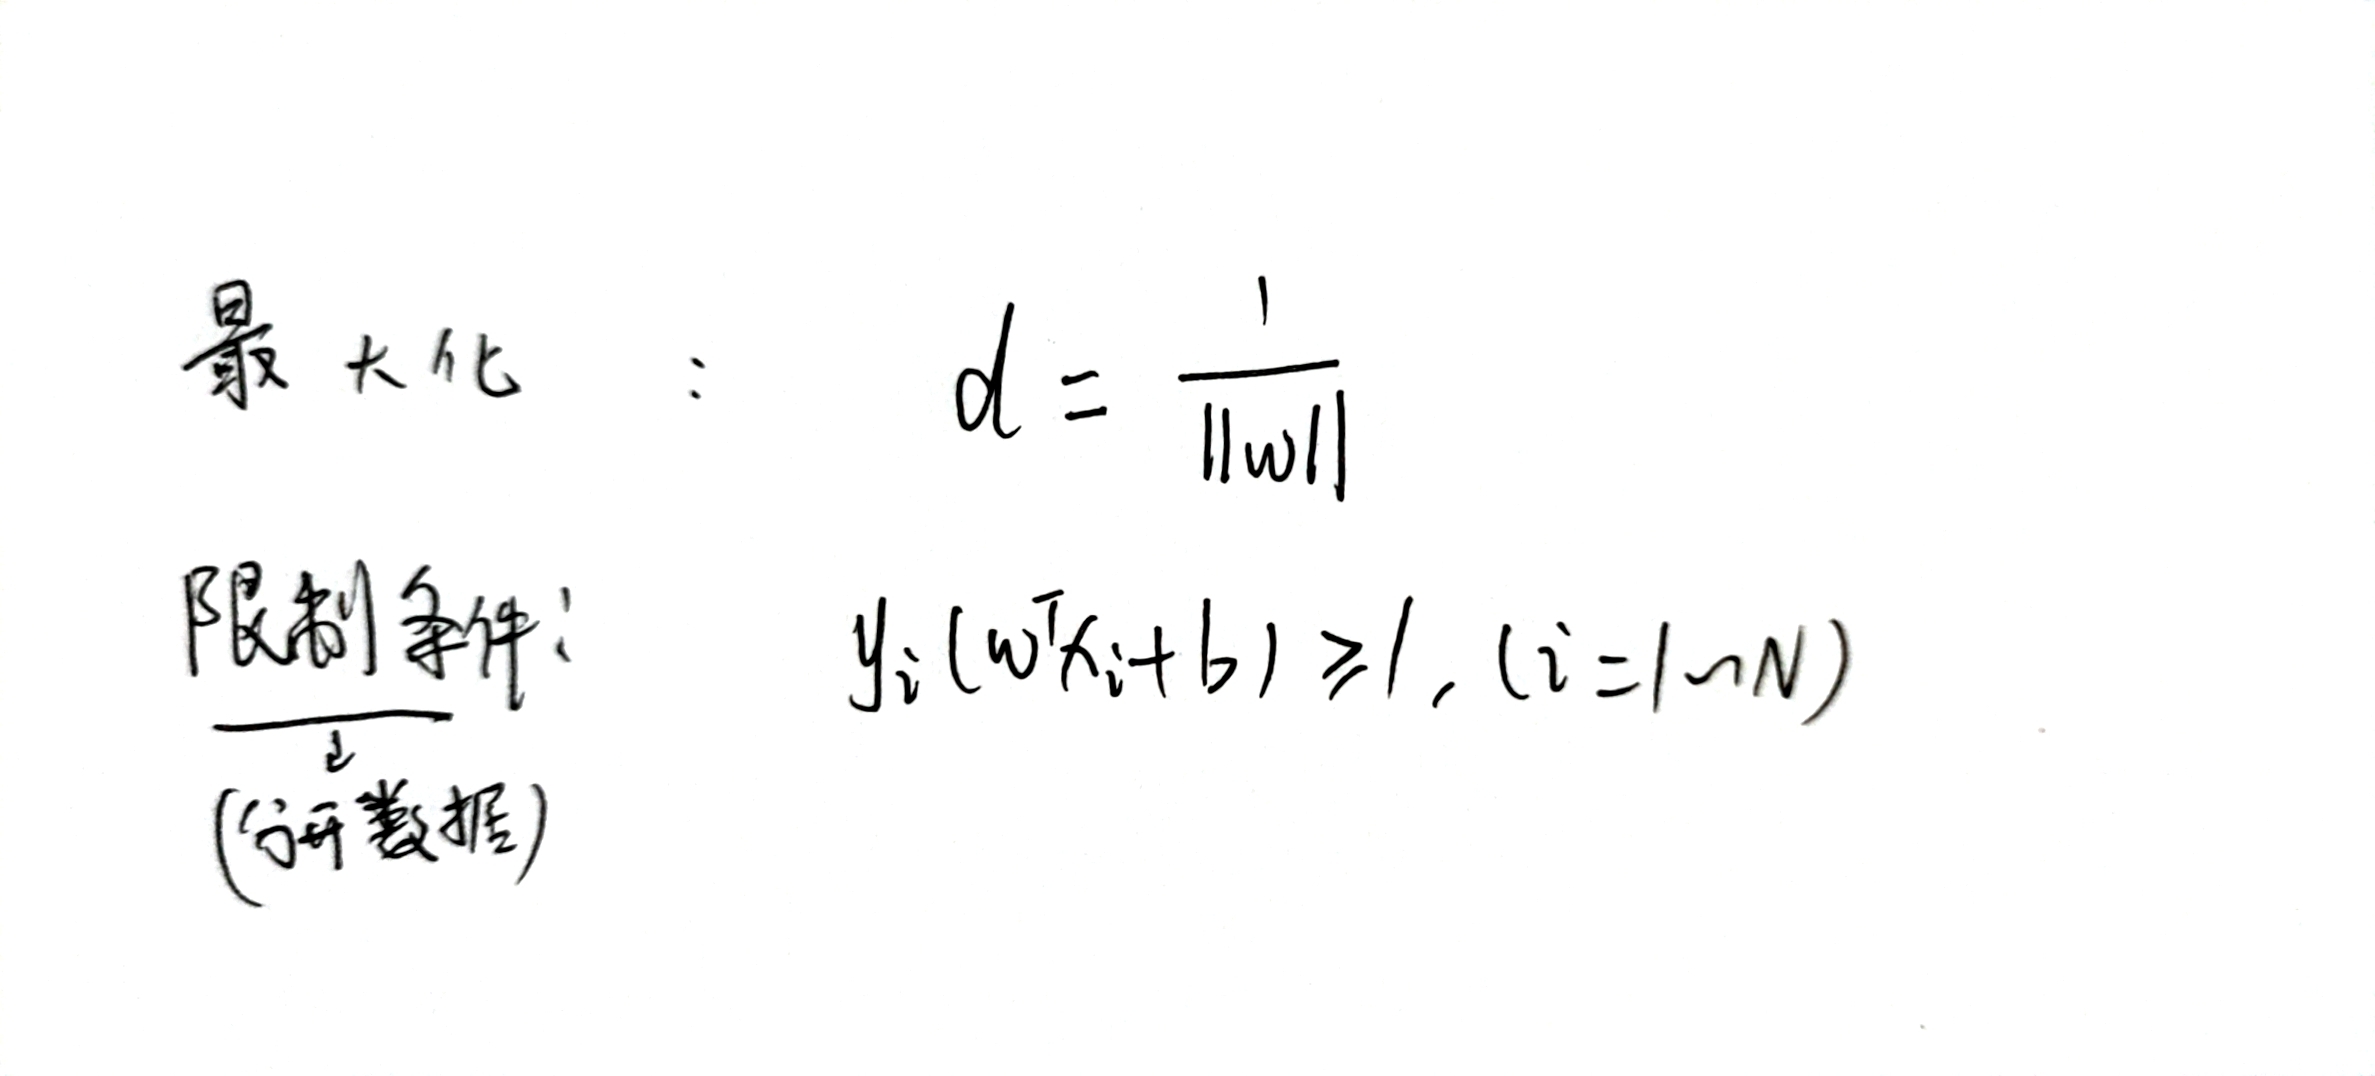 最大化 : d = 1/||w||
限制条件: y_i(w^T x_i + b) ≥ 1, (i = 1 ~ N)
↓
(分开数据)